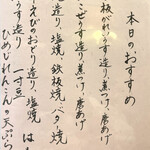 本日のおすすめ
板がれいうす造り、煮つけ、唐あげ
こぜうす造り、煮つけ、唐あげ
造り、塩焼、鉄板焼、バタ焼
えびのおどり造り、塩焼
うす造り 一寸豆
ひめびれんこんの天ぷら